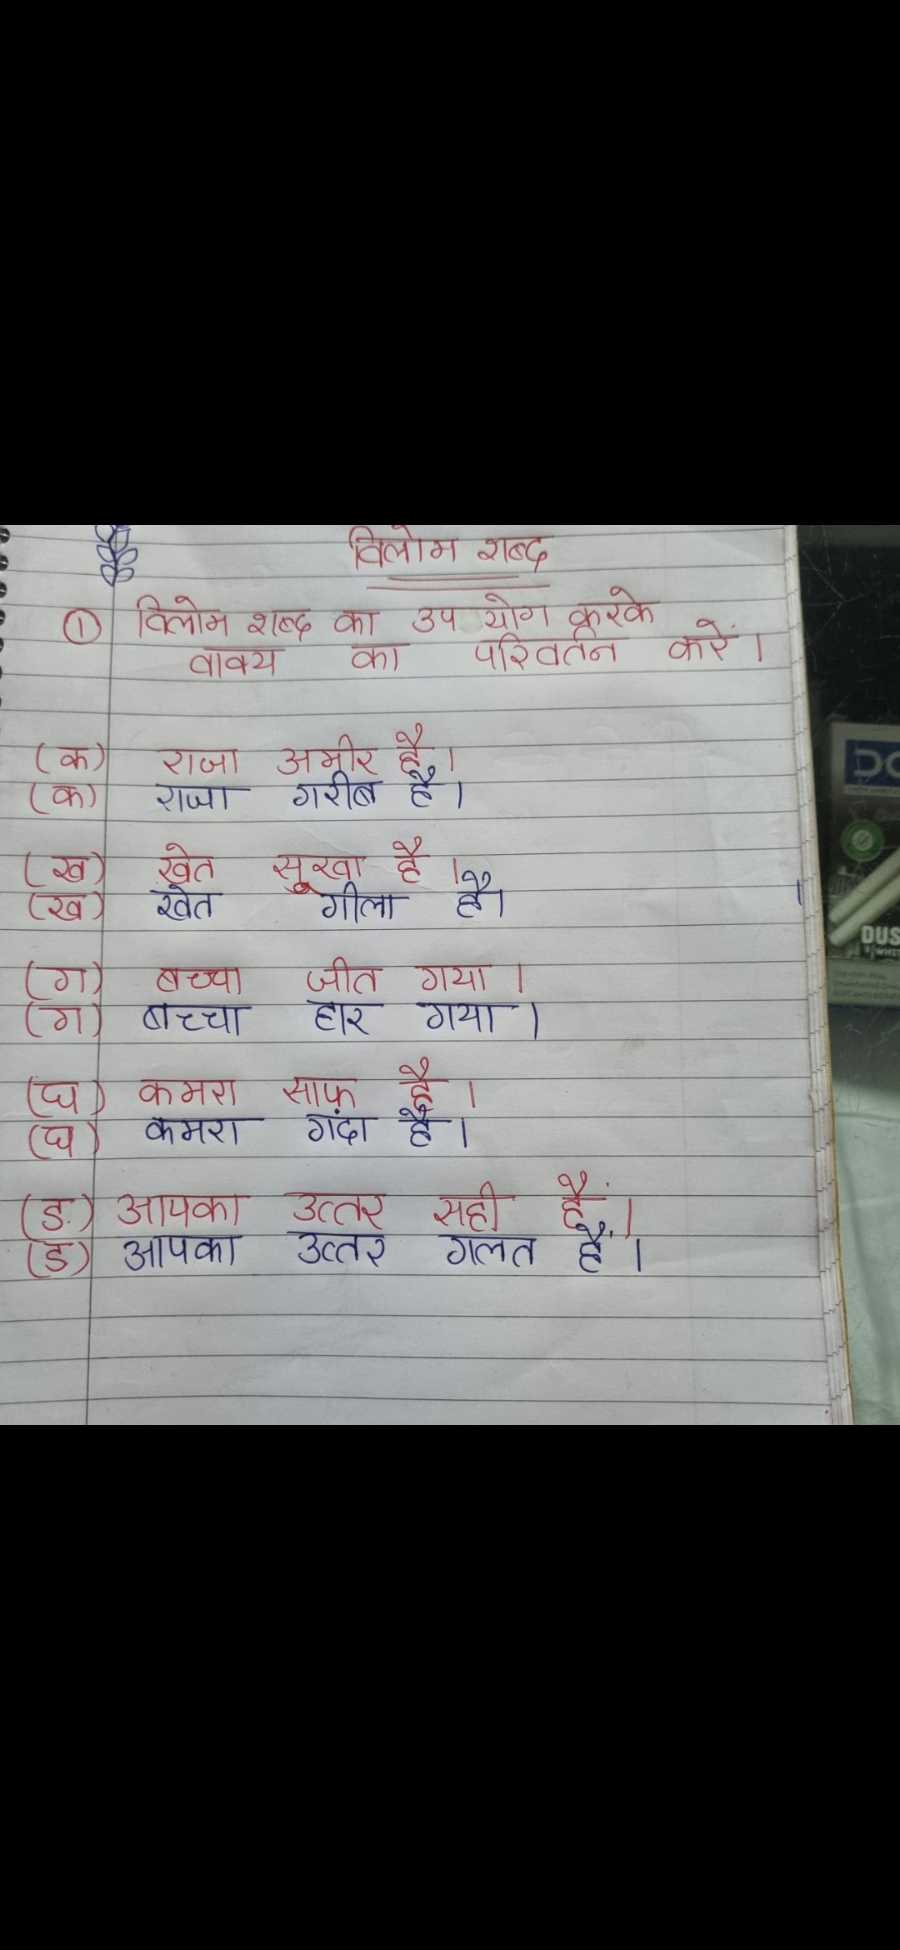 विलोम शब्द
① विलोम शब्द का उप योग करके
वाक्य का परिवर्तन करें।
(क) राजा अमीर है।
(क) राजा गरीब है।
(ख) खेत सुखा है।
(ख) खेत गीला है।
(ग) बच्चा जीत गया।
(ग) बच्चा हार गया।
(घ) कमरा साफ़ है।
(घ) कमरा गंदा है।
(ङ) आपका उत्तर सही हैं।
(ङ) आपका उत्तर गलत हैं।
DUS